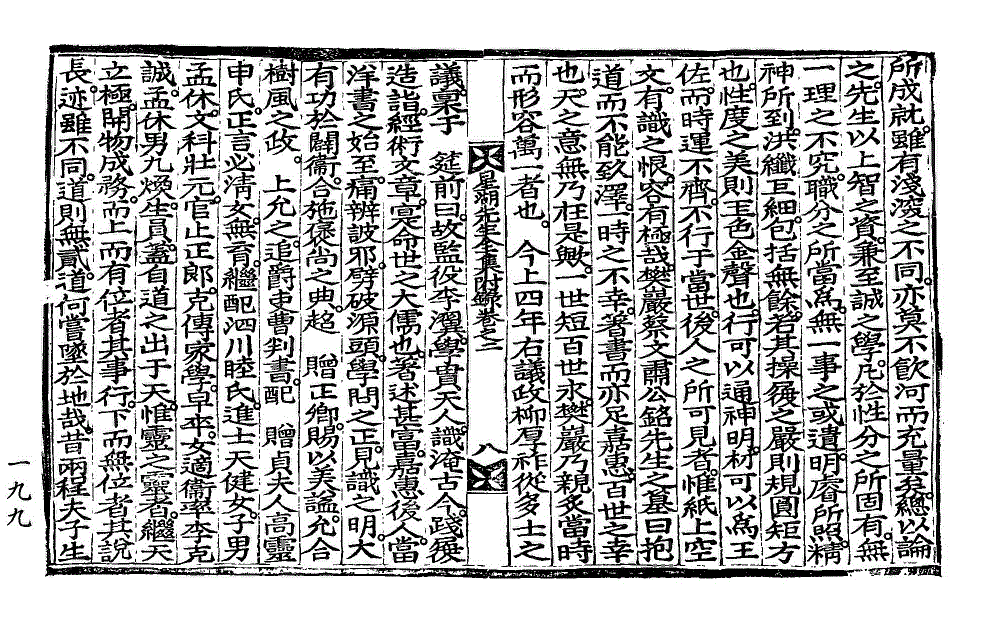 所成就。雖有淺深之不同。亦莫不飮河而充量矣。總以論
之。先生以上智之資。兼至誠之學。凡於性分之所固有。無
一理之不究。職分之所當爲。無一事之或遺。明睿所照。精
神所到。洪纖巨細。包括無餘。若其操履之嚴則規圓矩方
也。性度之美則玉色金聲也。行可以通神明。材可以爲王
佐。而時運不齊。不行于當世。後人之所可見者。惟紙上空
文。有識之恨。容有極哉。樊巖蔡文肅公銘先生之墓曰抱
道而不能致澤。一時之不幸。著書而亦足嘉惠。百世之幸
也。天之意無乃枉是歟。一世短百世永。樊巖乃親炙當時
而形容萬一者也。 今上四年右議政柳厚祚從多士之
星湖先生全集附錄卷之二
八
議。稟于 筵前曰。故監役李瀷。學貫天人。識淹古今。踐履
造詣。經術文章。寔命世之大儒也。著述甚富。嘉惠後人。當
洋書之始至。痛辨詖邪。劈破源頭。學問之正。見識之明。大
有功於闢衛。合施褒尙之典。超 贈正卿。賜以美諡。允合
樹風之政。 上允之。追爵吏曹判書。配 贈貞夫人高靈
申氏。正言必淸女。無育。繼配泗川睦氏。進士天健女。子男
孟休。文科壯元。官止正郞。克傳家學。早卒。女適衞率李克
誠。孟休男九煥。生員。蓋自道之出于天。惟靈之靈者。繼天
立極。開物成務。而上而有位者其事行。下而無位者其說
長。迹雖不同。道則無貳。道何嘗墜於地哉。昔兩程夫子生
一九九